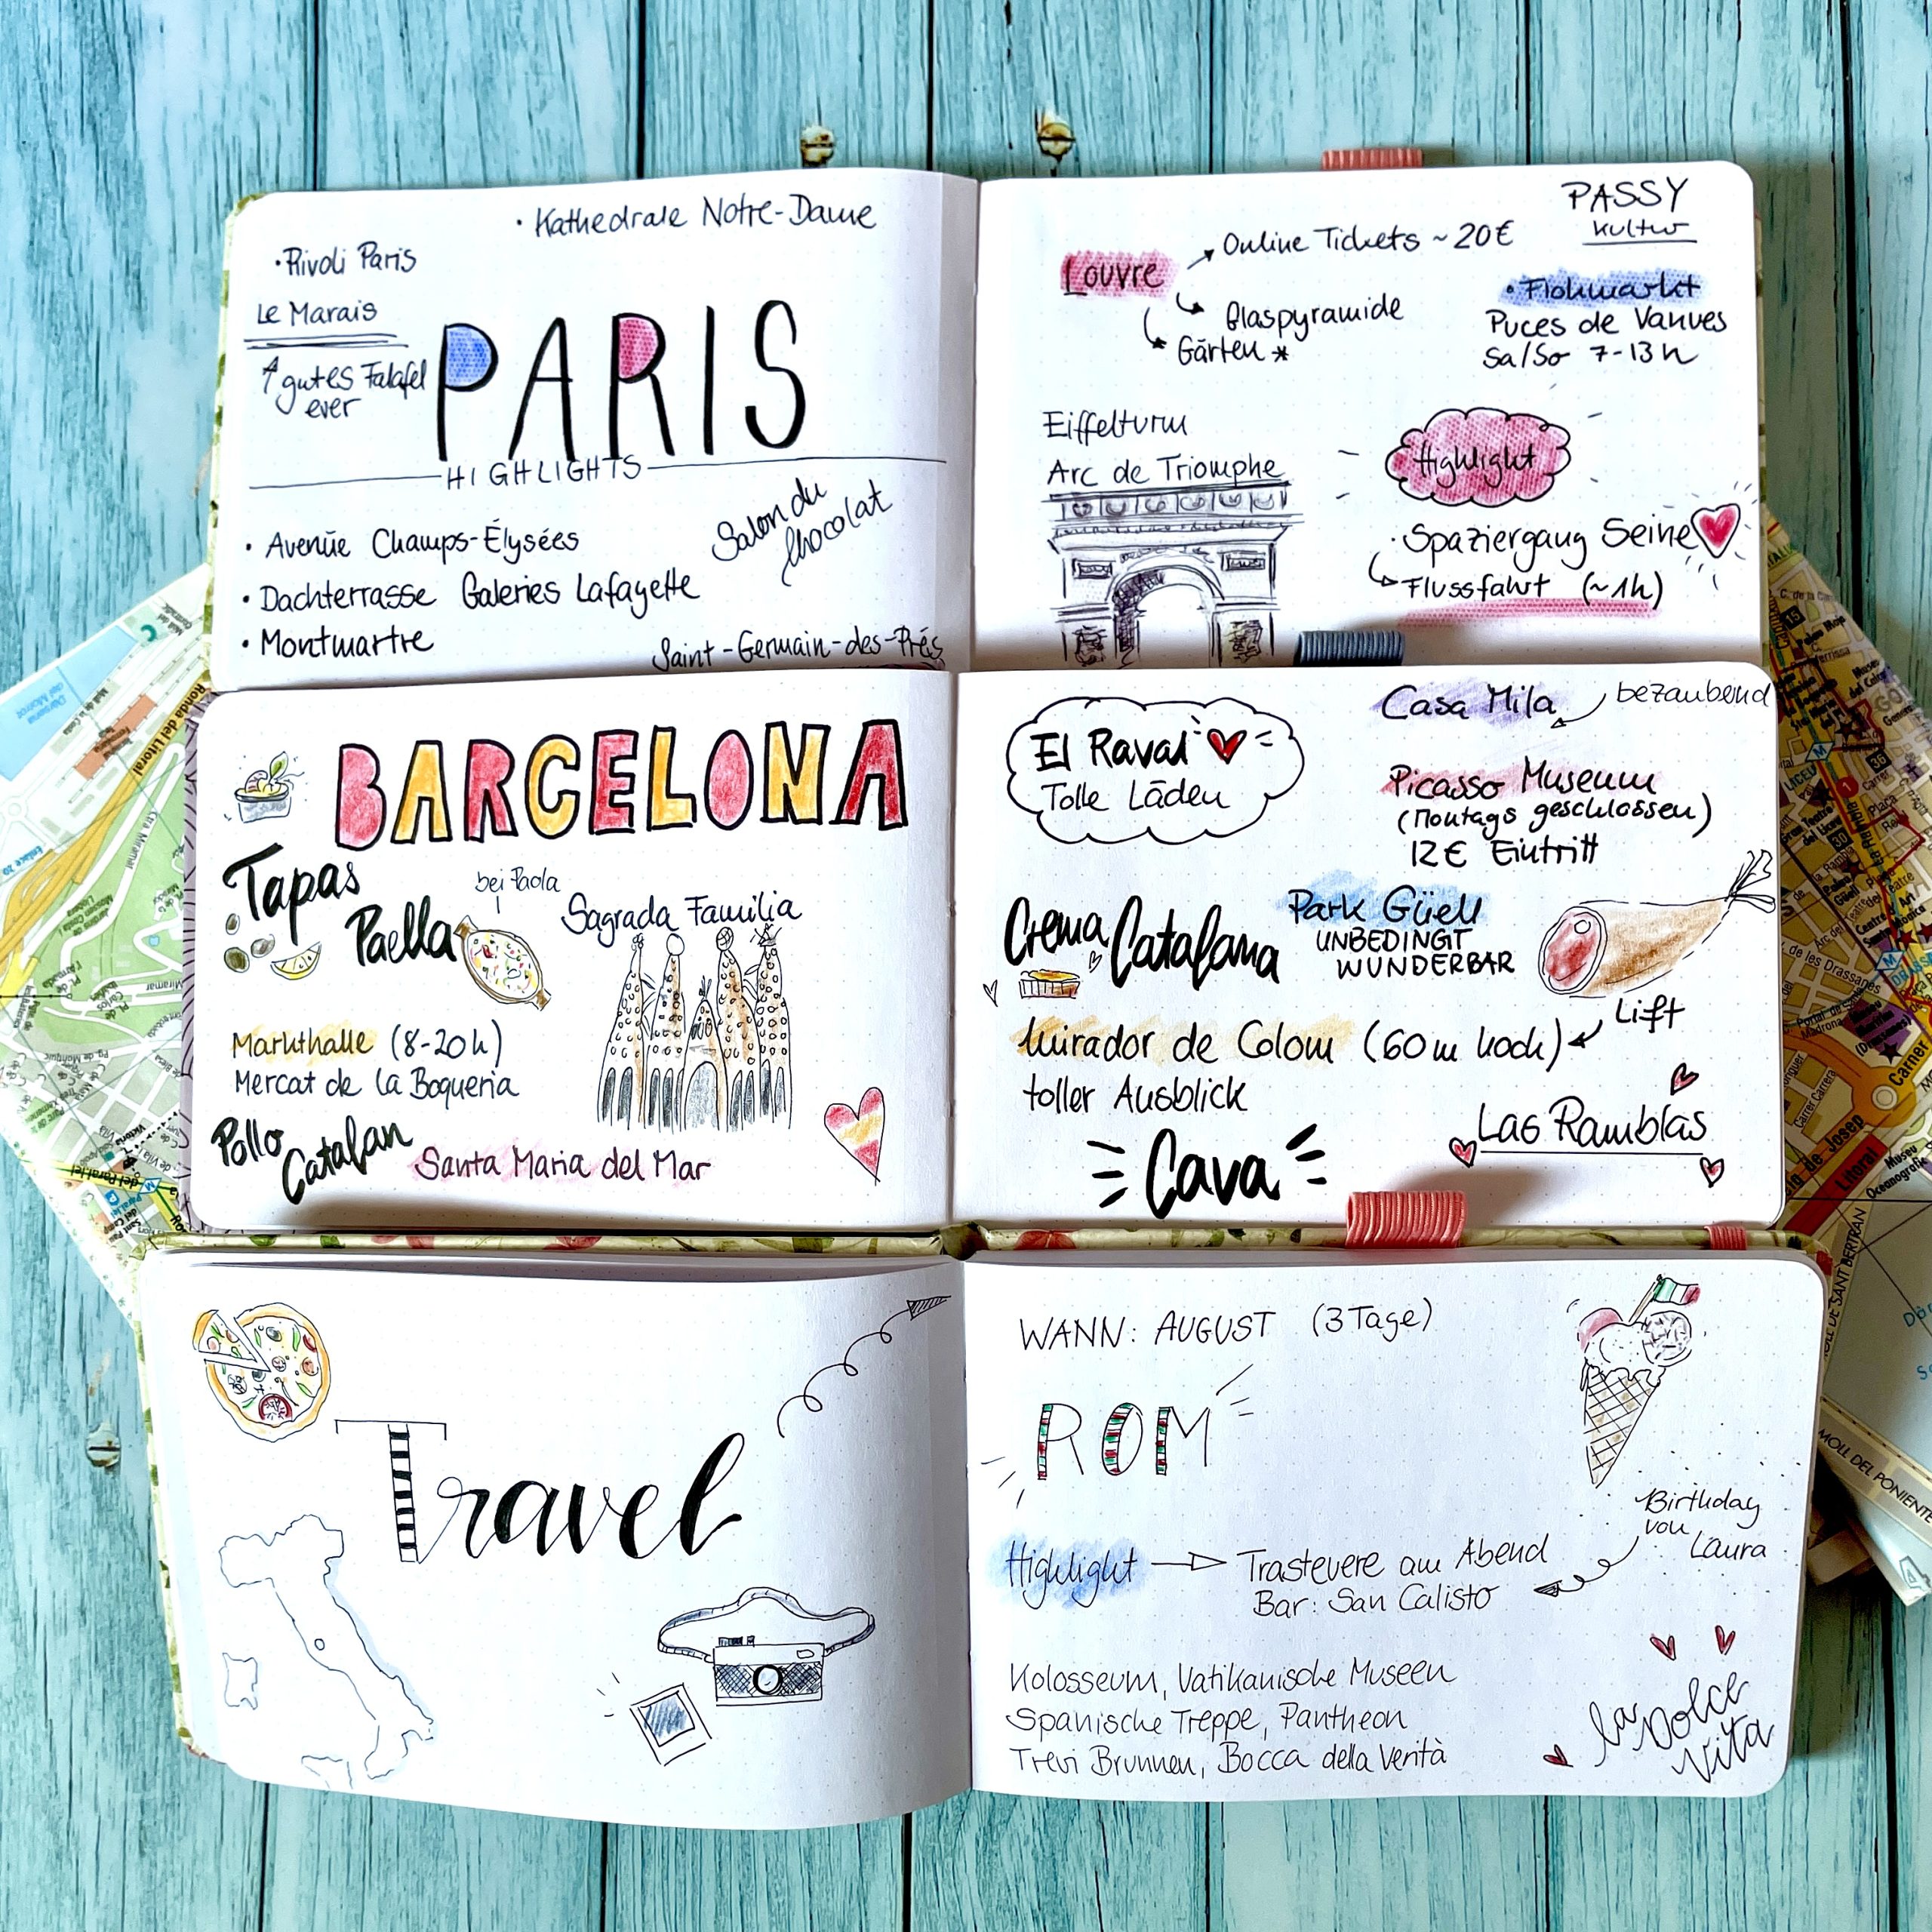 • Kathedrale Notre-Dame
• Rivoli Paris
Le Marais
gutes Falafel
ever
PARIS
HIGHLIGHTS
• Avenue Champs-Élysées
• Dachterrasse Galeries Lafayette
• Montmartre
Salon du
Chocolat
Saint-Germain-des-Prés
PASSY
Kultur
Louvre
Online Tickets ~20€
Glaspyramide
Gärten *
• Flohmarkt
Puces de Vanves
Sa/So 7-13h
Eiffelturm
Arc de Triomphe
Highlight
• Spaziergang Seine
Flussfahrt (~1h)
BARCELONA
Tapas
Paella
bei Paola
Sagrada Familia
Markthalle (8-20h)
Mercat de la Boqueria
Pollo
Catalan
Santa Maria del Mar
El Raval
Tolle Läden
Casa Mila
bezaubend
Picasso Museum
(Montags geschlossen)
12€ Eintritt
Crema
Catalana
Park Güell
UNBEDINGT
WUNDERBAR
Lift
Mirador de Colom (60m hoch)
toller Ausblick
Cava
Las Ramblas
Travel
WANN: AUGUST (3 Tage)
ROM
Highlight
Trastevere am Abend
Bar: San Calisto
Birthday
von
Laura
Kolosseum, Vatikanische Museen
Spanische Treppe, Pantheon
Trevi Brunnen, Bocca della Verità
la Dolce
Vita
Ronda del Litoral
Miramar
del Paral·lel
LICEU
Carrer
de Josep
Litoral
Museu
Oceanografic
MOLL DE SANT BERTRAN
MOLL DEL PONIENTE